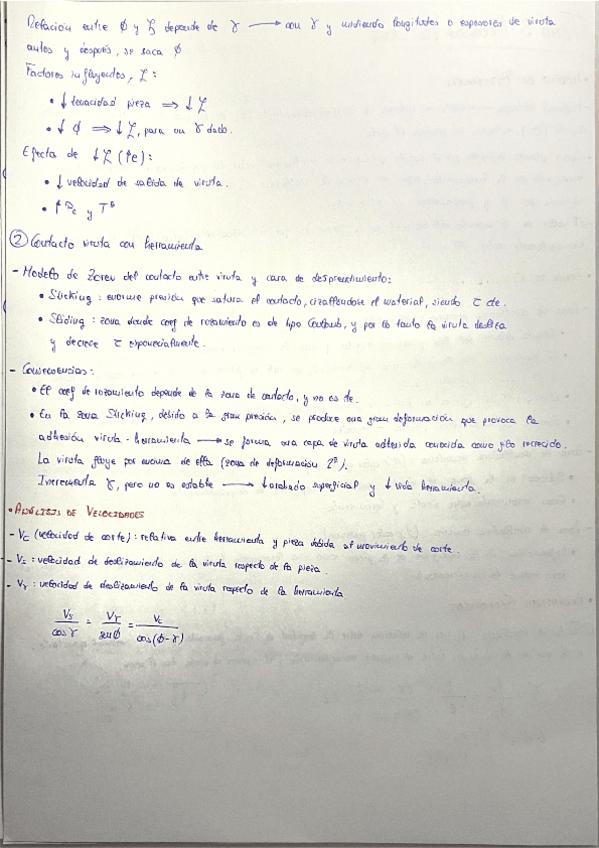 Relación entre ϕ y ζ depende de γ ⟶ con γ y midiendo longitudes o espesores de viruta
antes y después, se saca ϕ
Factores influyentes, ζ:
• ↓ tenacidad pieza ⟹ ↓ ζ
• ↓ ϕ ⟹ ↓ ζ, para un γ dado.
Efecto de ↓ ζ (↑e):
• ↓ velocidad de salida de viruta.
• ↑ Pc y Tª
② Contacto viruta con herramienta
- Modelo de Zorev del contacto entre viruta y cara de desprendimiento:
• Sticking: enorme presión que satura el contacto, cizallándose el material, siendo τ cte.
• Sliding: zona donde coef de rozamiento es de tipo Coulomb, y por lo tanto la viruta desliza
y decrece τ exponencialmente.
- Consecuencias:
• El coef de rozamiento depende de la zona de contacto, y no es cte.
• En la zona Sticking, debido a la gran presión, se produce una gran deformación que provoca la
adhesión viruta-herramienta ⟶ se forma una capa de viruta adherida conocida como filo recrecido.
La viruta fluye por encima de ella (zona de deformación 2ª).
Incrementa γ, pero no es estable ⟶ ↓ acabado superficial y ↓ vida herramienta.
• ANÁLISIS DE VELOCIDADES
- Vc (velocidad de corte): relativa entre herramienta y pieza debida al movimiento de corte.
- Vs: velocidad de deslizamiento de la viruta respecto de la pieza.
- Vγ: velocidad de deslizamiento de la viruta respecto de la herramienta
Vs/cos γ = Vγ/sen ϕ = Vc/cos(ϕ-γ)